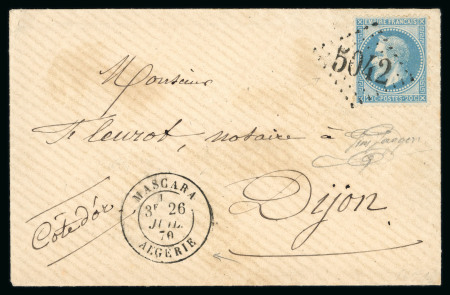 EMPIRE FRANÇAIS
5042
20 C POSTES 20 C
Monsieur
Fleurot, notaire à
Dijon
Côte d'or
MASCARA
3E 26
JUIL.
70
ALGERIE